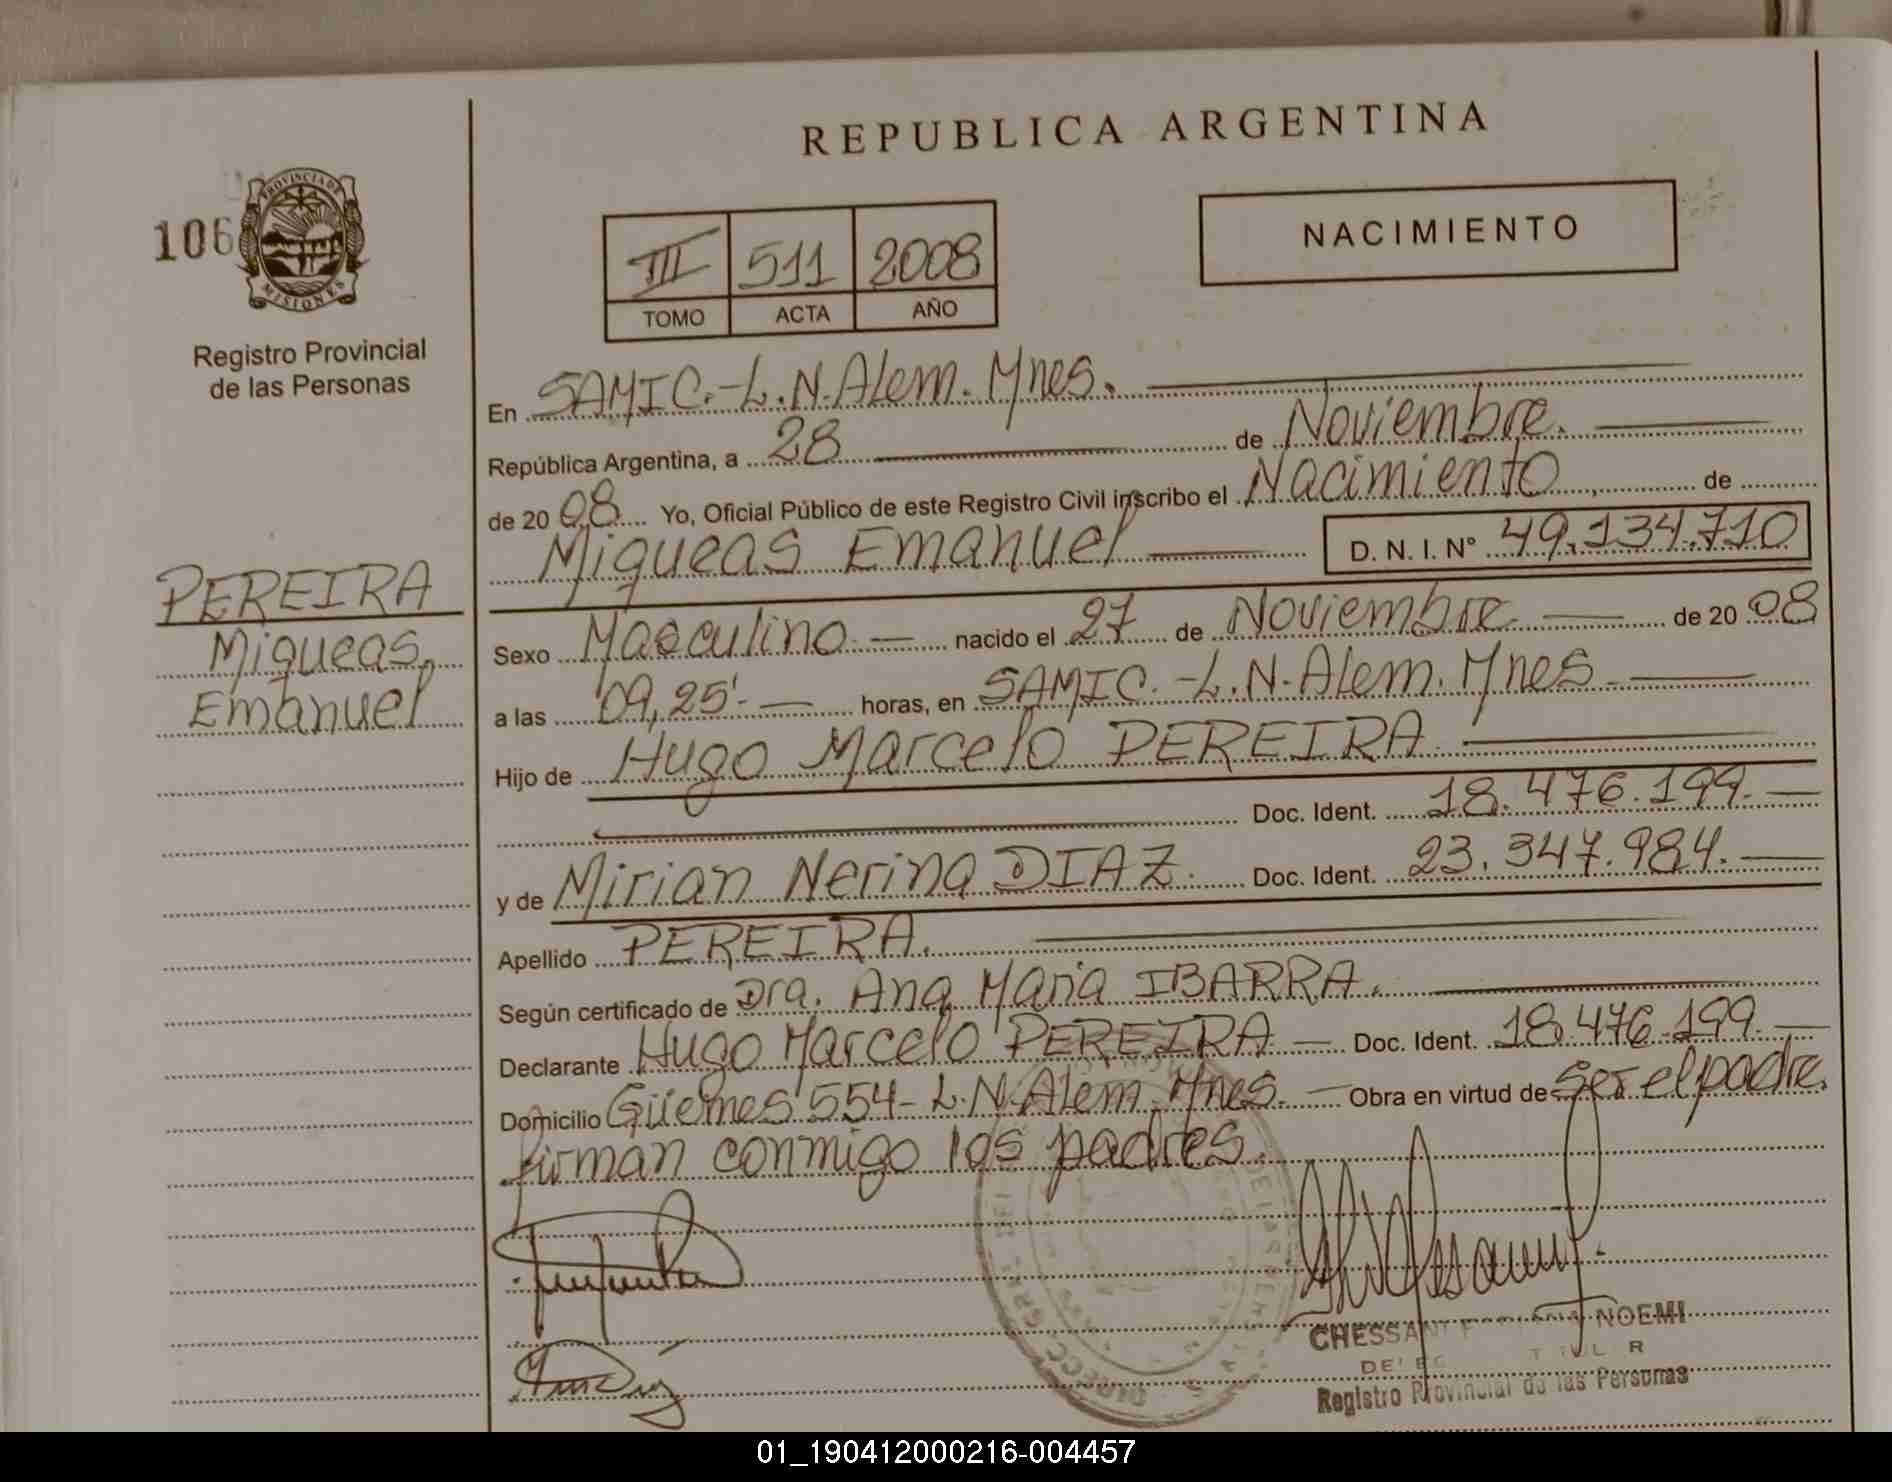 REPUBLICA ARGENTINA
106
PROVINCIA DE
MISIONES
Registro Provincial
de las Personas
III 511 2008
TOMO ACTA AÑO
NACIMIENTO
PEREIRA
Miqueas
Emanuel
En SAMIC.-L.N.Alem.Mnes.
República Argentina, a 28 de Noviembre.
de 20 08 Yo, Oficial Público de este Registro Civil inscribo el Nacimiento de
Miqueas Emanuel D. N. I. Nº 49.134.710
Sexo Masculino.- nacido el 27 de Noviembre de 20 08
a las 09,25'.- horas, en SAMIC.-L.N.Alem.Mnes
Hijo de Hugo Marcelo PEREIRA
Doc. Ident. 18.476.199.-
y de Mirian Nerina DIAZ. Doc. Ident. 23.347.984.-
Apellido PEREIRA.
Según certificado de Dra. Ana Maria IBARRA.
Declarante Hugo Marcelo PEREIRA - Doc. Ident. 18.476.199.-
Domicilio Güemes 554- L.N.Alem.Mnes.- Obra en virtud de ser el padre.
firman conmigo los padres.
CHESSANI NOEMI
Registro Provincial de las Personas
01_190412000216-004457